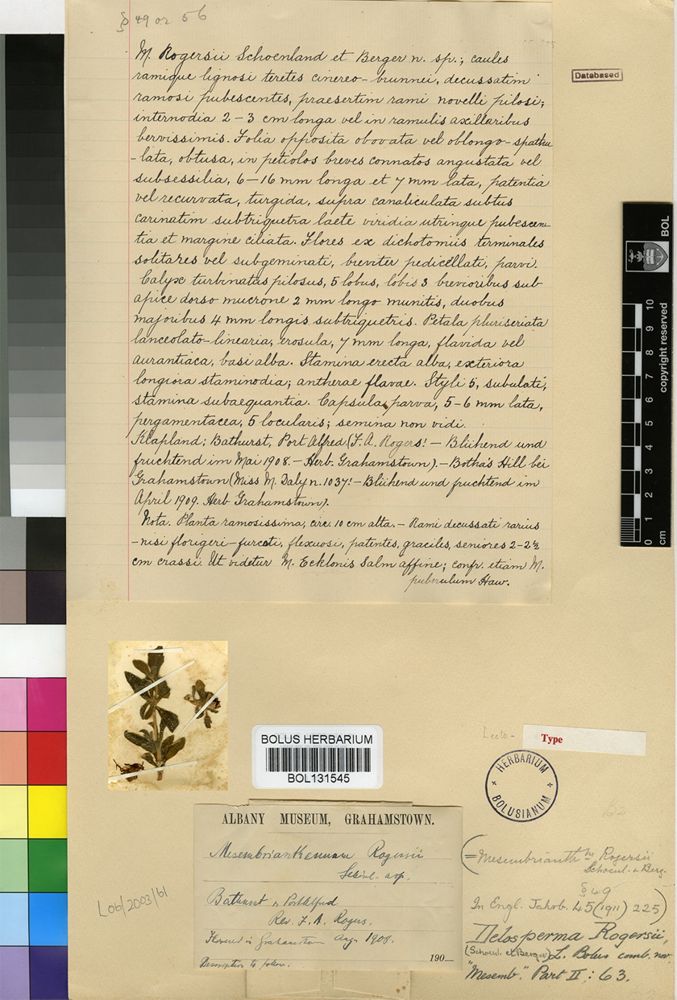 § 49 or 56
M. Rogersii Schoenland et Berger n. sp.; caules
ramique lignosi teretes cinereo-brunnei, decussatim
ramosi pubescentes, praesertim rami novelli pilosi;
internodia 2–3 cm longa vel in ramulis axillaribus
brevissimis. Folia opposita obovata vel oblongo-spathu
-lata, obtusa, in petiolos breves connatos angustata vel
subsessilia, 6–16 mm longa et 7 mm lata, patentia
vel recurvata, turgida, supra canaliculata subtus
carinatim subtriquetra laete viridia utrinque pubescen-
tia et margine ciliata. Flores ex dichotomiis terminales
solitares vel subgeminati, breviter pedicellati, parvi.
Calyx turbinatus pilosus, 5 lobus, lobis 3 brevioribus sub
apice dorso mucrone 2 mm longo munitis, duobus
majoribus 4 mm longis subtriquetris. Petala pluriseriata
lanceolato-linearia, erosula, 7 mm longa, flavida vel
aurantiaca, basi alba. Stamina erecta alba, exteriora
longiora staminodia; antherae flavae. Styli 5, subulati,
stamina subaequantia. Capsula parva, 5-6 mm lata,
pergamentacea, 5 locularis; semina non vidi.
Kapland; Bathurst, Port Alfred (F. A. Rogers! – Blühend und
fruchtend im Mai 1908. – Herb. Grahamstown). – Botha's Hill bei
Grahamstown (Miss M. Daly n. 1037! – Blühend und fruchtend im
April 1909. Herb Grahamstown).
Nota. Planta ramosissima, circ. 10 cm alta. – Rami decussati rarius
-nisi florigeri-furcati, flexuosi, patentes, graciles, seniores 2-2½
cm crassi. Ut videtur M. Ecklonis Salm affine; confr. etiam M.
puberulum Haw.
Databased
BOL
copyright reserved
0 1 2 3 4 5 6 7 8 9 10
cm
BOLUS HERBARIUM
BOL131545
Lecto-
Type
HERBARIUM
BOLUSIANUM
ALBANY MUSEUM, GRAHAMSTOWN.
Mesembrianthemum Rogersii
Schönl. n sp.
Bathurst & Port Alfred
Rev. F. A. Rogers.
Flowered in Grahamstown Aug. 1908.
190
Description to follow.
Lob/2003/61
(= Mesembrianthm Rogersii
Schoenl. & Berg.
§ 49
In Engl. Jahrb. 45 (1911) 225)
Delosperma Rogersii,
(Schoenl. et Berger) L. Bolus comb. nov.
"Mesemb." Part II : 63.